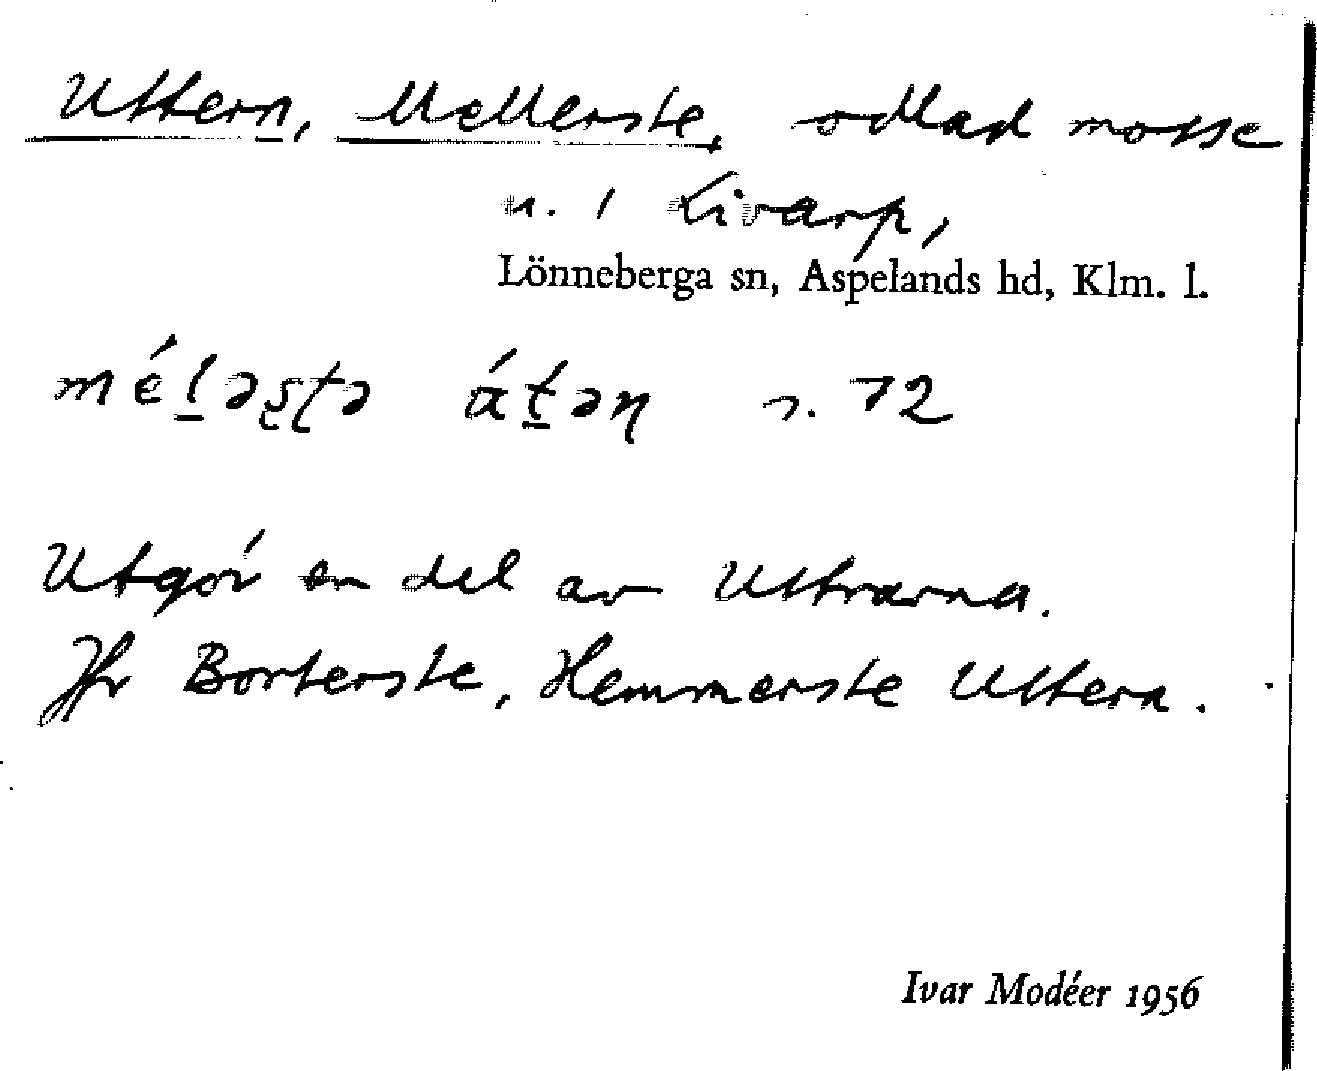 Uttern, Mellerste, odlad mosse
n. 1 Livarp,
Lönneberga sn, Aspelands hd, Klm. l.
s. 72
Utgör en del av Uttrarna.
Jfr Borterste, Hemmerste Uttern.
Ivar Modéer 1956